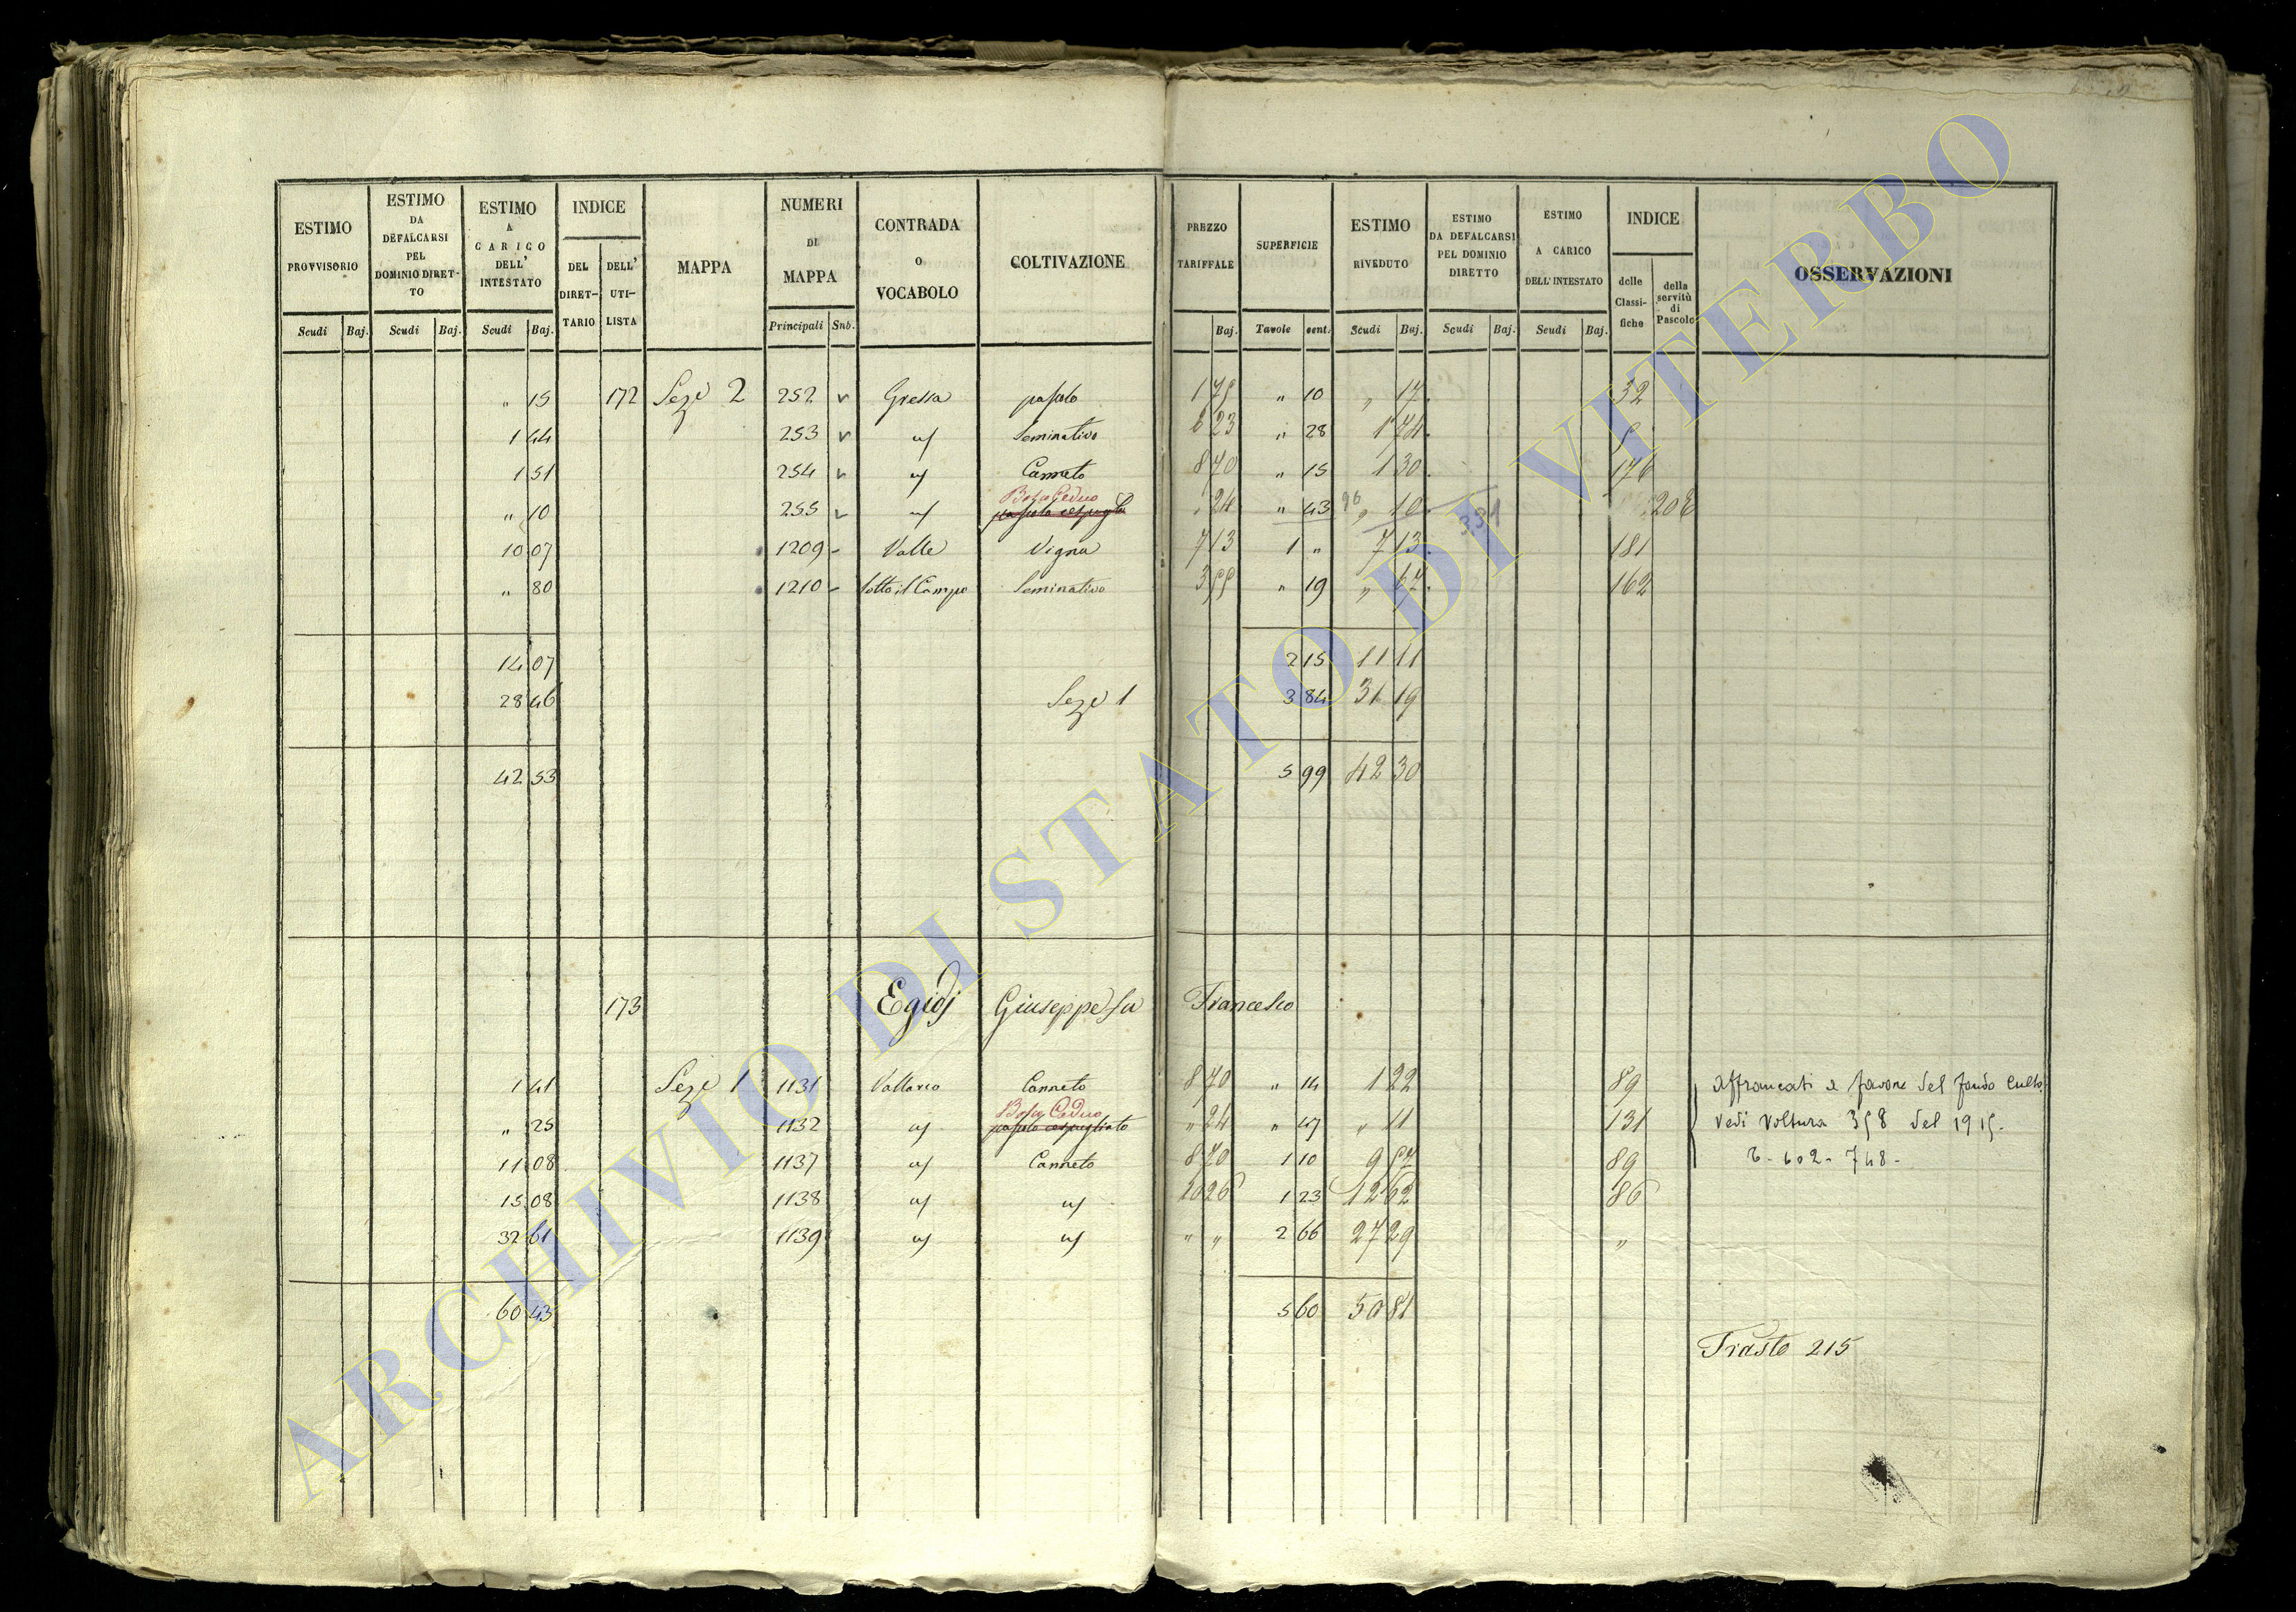 ESTIMO PROVVISORIO Scudi Baj. | ESTIMO DA DEFALCARSI PEL DOMINIO DIRET-TO Scudi Baj. | ESTIMO A CARICO DELL' INTESTATO Scudi Baj. | INDICE DEL DIRET-TARIO DELL' UTI-LISTA | MAPPA | NUMERI DI MAPPA Principali Sub. | CONTRADA O VOCABOLO | COLTIVAZIONE | PREZZO TARIFFALE Baj. | SUPERFICIE Tavole cent. | ESTIMO RIVEDUTO Scudi Baj. | ESTIMO DA DEFALCARSI PEL DOMINIO DIRETTO Scudi Baj. | ESTIMO A CARICO DELL'INTESTATO Scudi Baj. | INDICE delle Classi-fiche della servitù di Pascolo | OSSERVAZIONI
" 15 172 Sez.e 2 252 Gressa pascolo 1 75 " 10 " 17 32
1 44 253 Seminativo 6 23 " 28 1 74
1 51 254 Canneto 8 70 " 15 1 30 176
Bosco Ceduo
" 10 255 pascolo cespugliato " 24 " 43 " 10 208
331
10 07 1209 Valle Vigna 7 13 1 " 7 13 181
" 80 1210 Sotto il Campo Seminativo 3 55 " 19 " 67 162
14 07 2 15 11 11
28 46 Sez.e 1 3 84 31 19
42 53 5 99 42 30
173 Egidj Giuseppe fu Francesco
1 41 Sez.e 1 1131 Vallarco Canneto 8 70 " 14 1 22 89 Affrancati a favore del fondo Culto
Bosco Ceduo
" 25 1132 pascolo cespugliato " 24 " 47 " 11 131 Vedi Voltura 358 del 1915.
11 08 1137 Canneto 8 70 1 10 9 57 89 602 - 748 -
15 08 1138 10 26 1 23 12 62 86
32 61 1139 " " 2 66 27 29 "
60 43 5 60 50 81
Trasto 215
ARCHIVIO DI STATO DI VITERBO